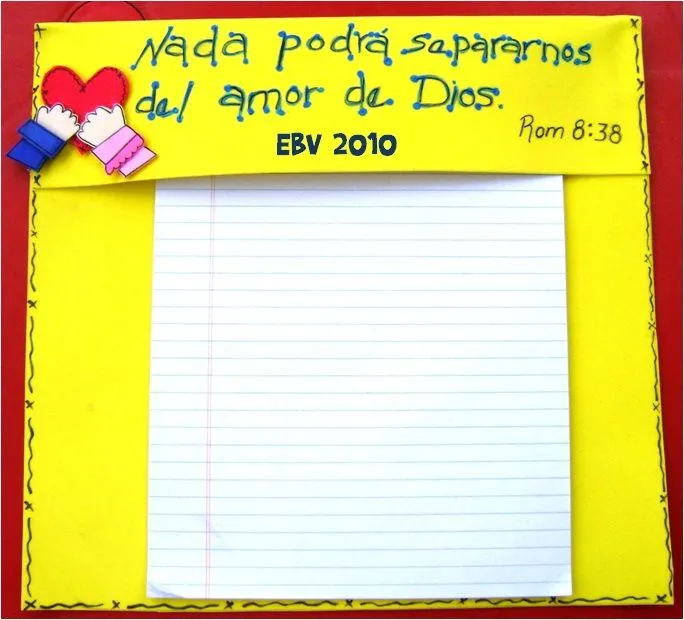 Nada podrá sapararnos
del amor de Dios.
Rom 8:38
EBV 2010